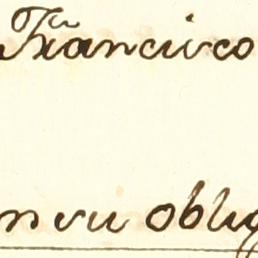 Francisco
n su oblig